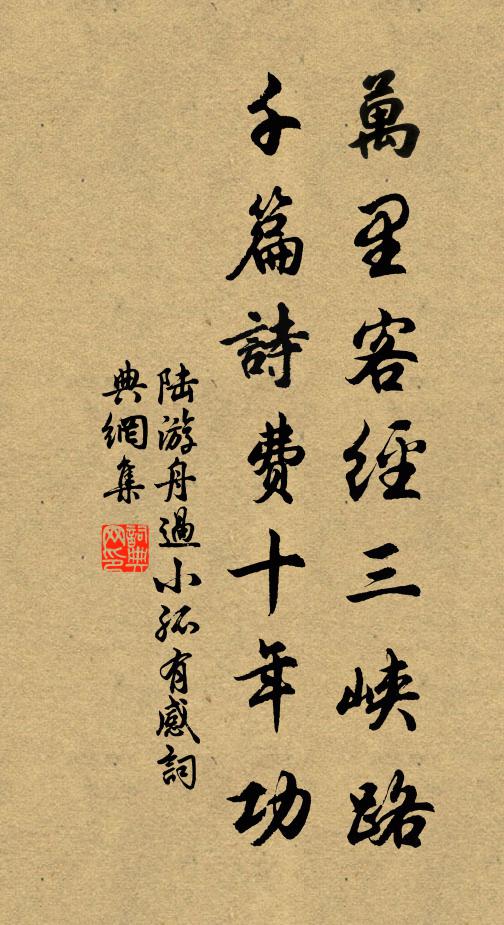 萬里客經三峽路
千篇詩費十年功
陆游舟過小孤有感詞
典網集
詞典網印